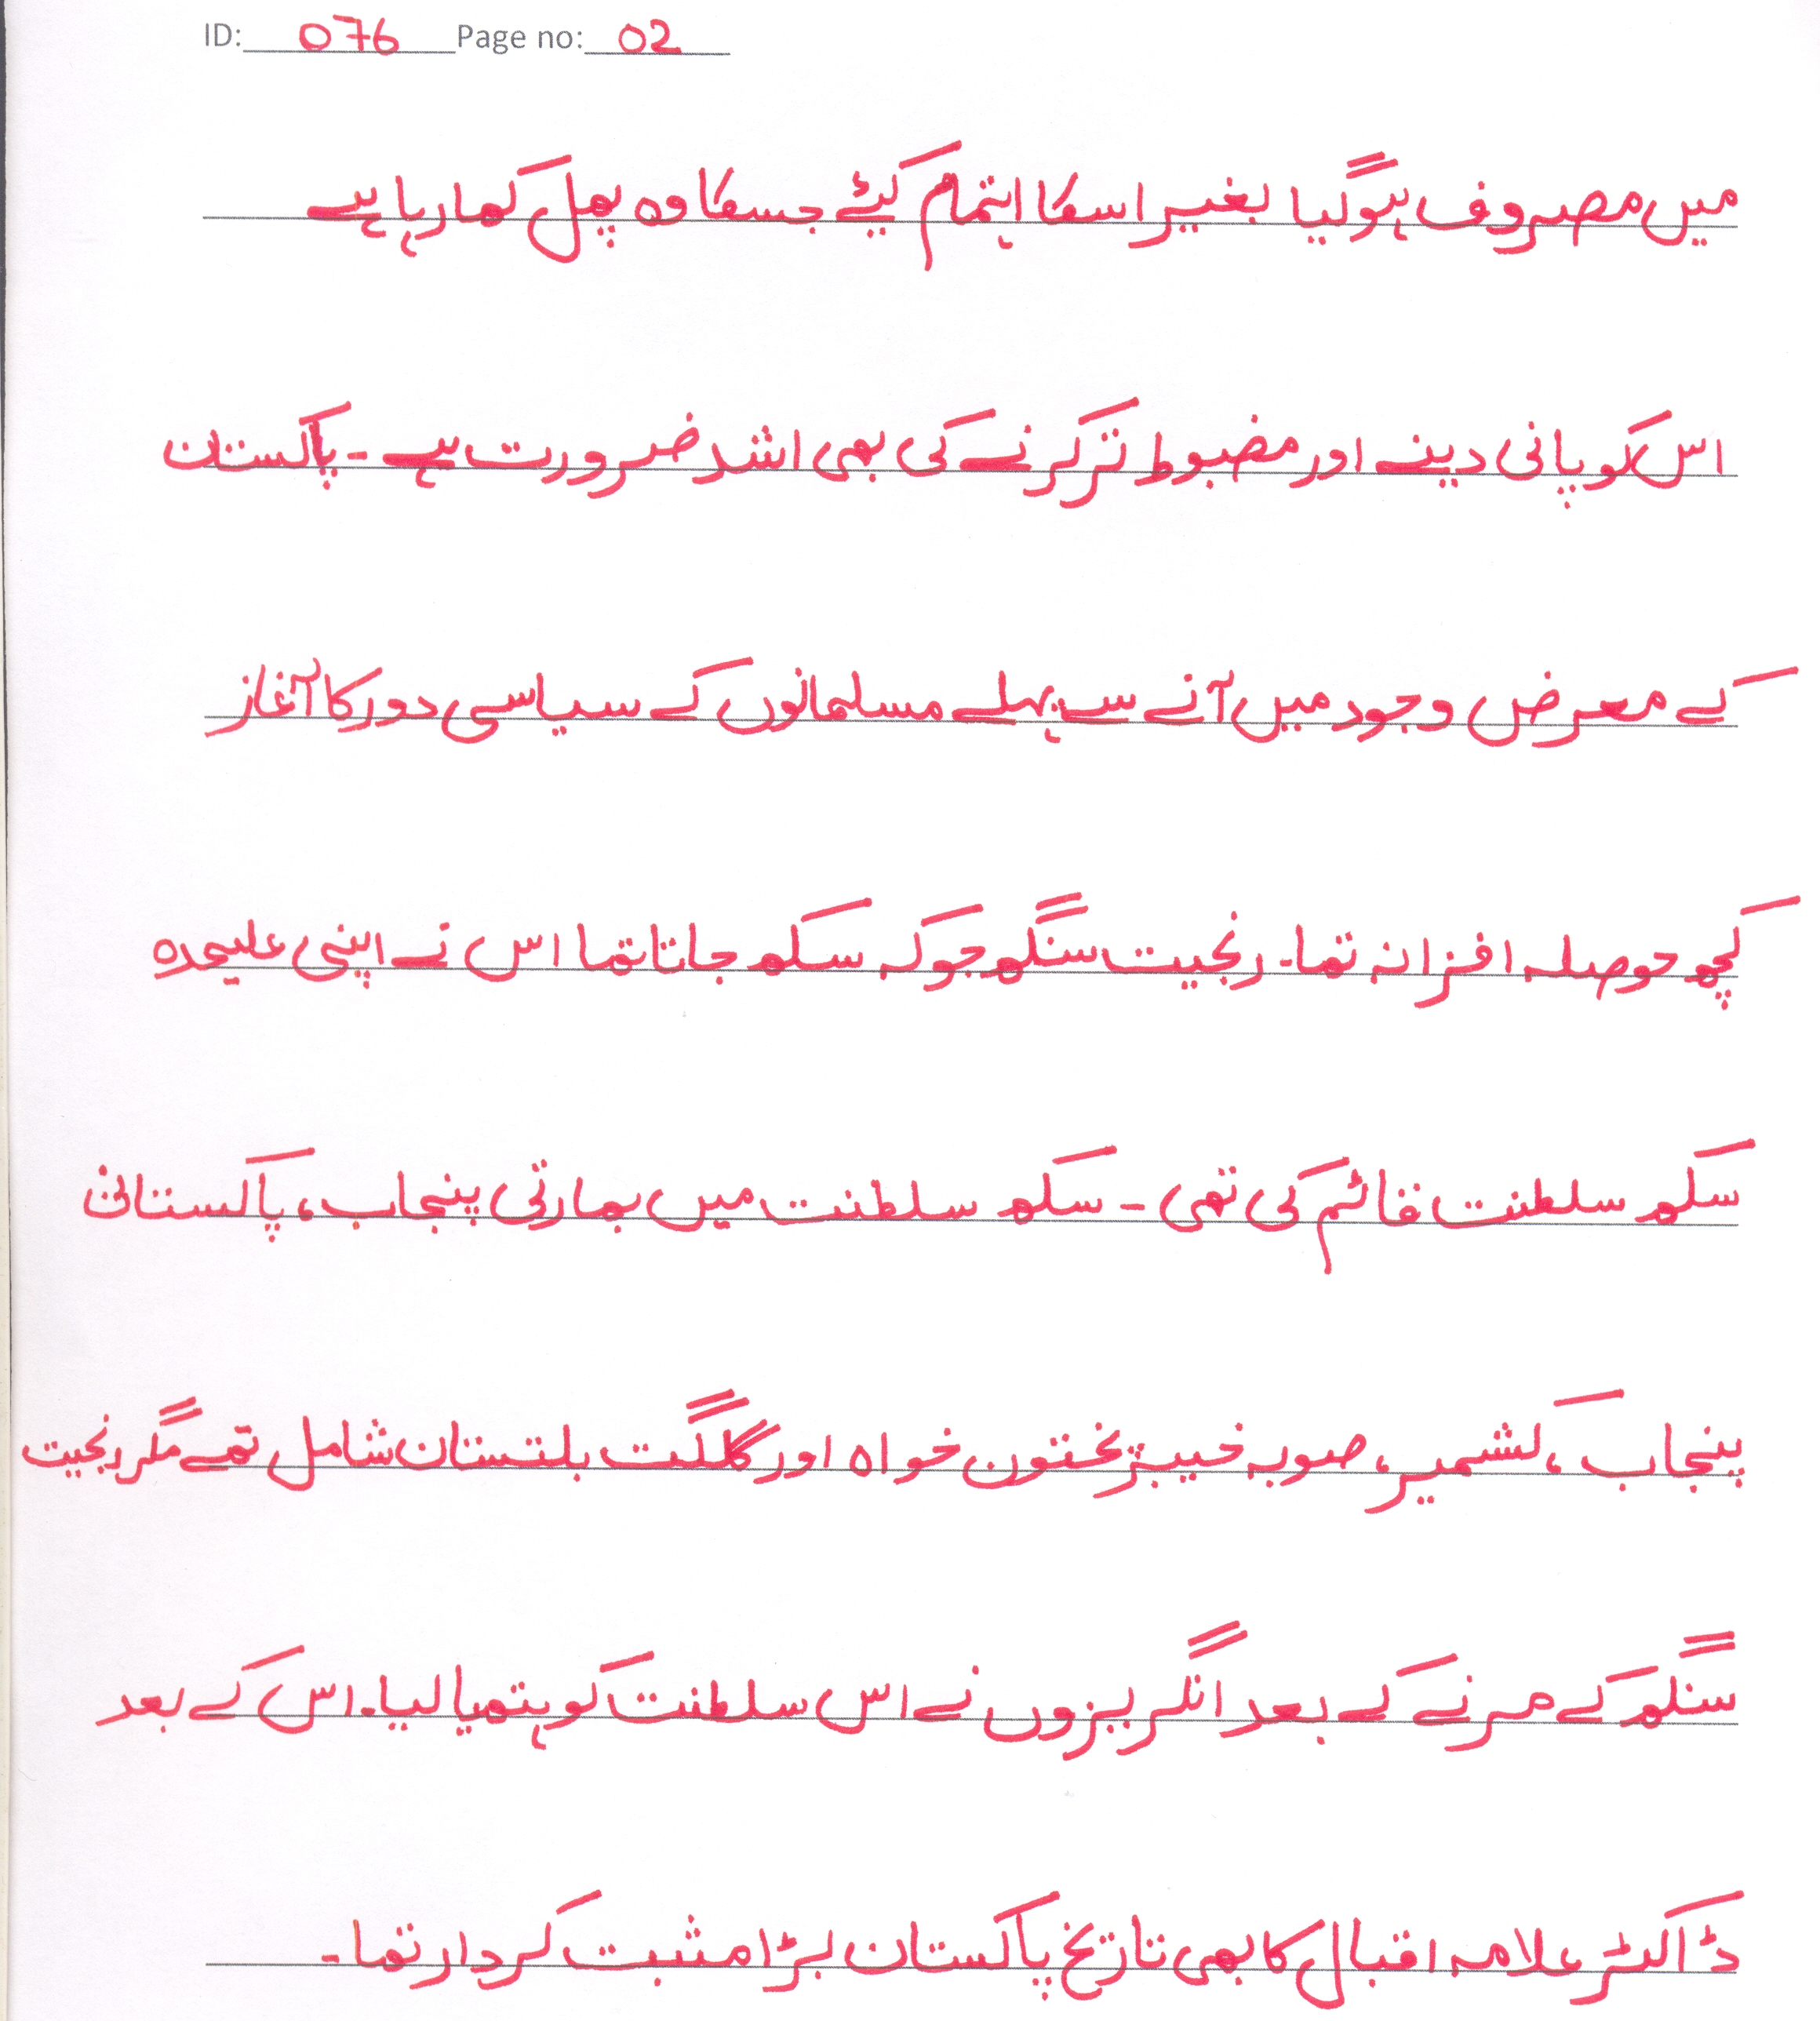 ID: 076 Page no: 02
میں مصروف ہوگیا بغیر اسکا اہتمام کیئے جسکا وہ پھل کھا رہا ہے
اس کو پانی دینے اور مضبوط تر کرنے کی بھی اشد ضرورت ہے - پاکستان
کے معرض وجود میں آنے سے پہلے مسلمانوں کے سیاسی دور کا آغاز
کچھ حوصلہ افزا نہ تھا - رنجیت سنگھ جو کہ سکھ جانا تھا اس نے اپنی علیحدہ
سکھ سلطنت قائم کی تھی - سکھ سلطنت میں بھارتی پنجاب، پاکستانی
پنجاب، کشمیر، صوبہ خیبر پختون خواہ اور گلگت بلتستان شامل تھے مگر رنجیت
سنگھ کے مرنے کے بعد انگریزوں نے اس سلطنت کو ہتھیا لیا۔ اس کے بعد
ڈاکٹر علامہ اقبال کا بھی تاریخ پاکستان بڑا مثبت کردار تھا -